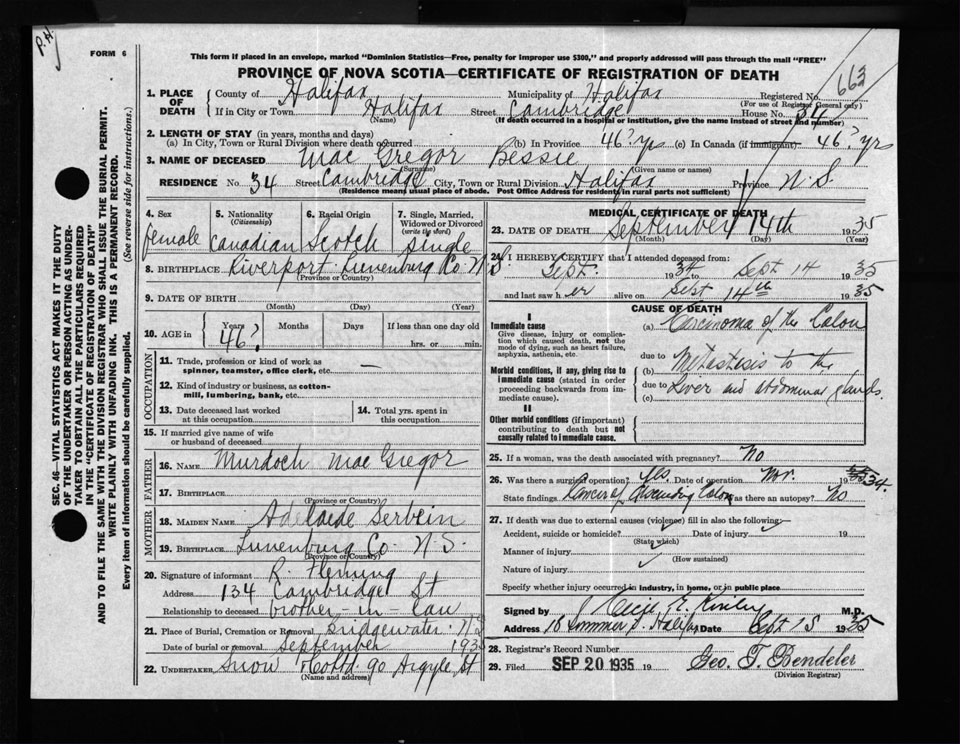 P.H.
FORM 6
This form if placed in an envelope, marked "Dominion Statistics—Free, penalty for improper use $300," and properly addressed will pass through the mail "FREE"
PROVINCE OF NOVA SCOTIA—CERTIFICATE OF REGISTRATION OF DEATH
663
SEC. 46—VITAL STATISTICS ACT MAKES IT THE DUTY
OF THE UNDERTAKER OR PERSON ACTING AS UNDER-
TAKER TO OBTAIN ALL THE PARTICULARS REQUIRED
IN THE "CERTIFICATE OF REGISTRATION OF DEATH"
AND TO FILE THE SAME WITH THE DIVISION REGISTRAR WHO SHALL ISSUE THE BURIAL PERMIT.
WRITE PLAINLY WITH UNFADING INK. THIS IS A PERMANENT RECORD.
Every item of information should be carefully supplied. (See reverse side for instructions.)
1. PLACE OF DEATH County of Halifax Municipality of Halifax Registered No.
(For use of Registrar General only)
If in City or Town Halifax Street Cambridge House No. 34
(Name) (If death occurred in a hospital or institution, give the name instead of street and number)
2. LENGTH OF STAY (in years, months and days)
(a) In City, Town or Rural Division where death occurred (b) In Province 46? yrs (c) In Canada (if immigrant) 46? yrs
3. NAME OF DECEASED Mac Gregor Bessie
(Surname) (Given name or names)
RESIDENCE No. 34 Street Cambridge City, Town or Rural Division Halifax Province N.S
(Residence means usual place of abode. Post Office Address for residents in rural parts not sufficient)
4. Sex 5. Nationality (Citizenship) 6. Racial Origin 7. Single, Married, Widowed or Divorced (write the word)
female Canadian Scotch single
8. BIRTHPLACE Riverport Lunenburg Co. N.S.
(Province or Country)
9. DATE OF BIRTH
(Month) (Day) (Year)
10. AGE in Years Months Days If less than one day old
46? hrs. or min.
OCCUPATION
11. Trade, profession or kind of work as
spinner, teamster, office clerk, etc. —
12. Kind of industry or business, as cotton-
mill, lumbering, bank, etc.
13. Date deceased last worked at this occupation 14. Total yrs. spent in this occupation
15. If married give name of wife
or husband of deceased
FATHER
16. NAME Murdoch Mac Gregor
17. BIRTHPLACE
(Province or Country)
MOTHER
18. MAIDEN NAME Adelaide
19. BIRTHPLACE Lunenburg Co. N.S.
(Province or Country)
20. Signature of informant R. Fleming
Address 134 Cambridge St
Relationship to deceased brother-in-law
21. Place of Burial, Cremation or Removal Bridgewater N.S
Date of burial or removal September 1935
22. UNDERTAKER Snow & Co Ltd. 90 Argyle St
(Name and address)
MEDICAL CERTIFICATE OF DEATH
23. DATE OF DEATH September 14th 1935
(Month) (Day) (Year)
24. I HEREBY CERTIFY that I attended deceased from:
Sept. 1934 to Sept 14 1935
and last saw her alive on Sept 14th 1935
CAUSE OF DEATH
I
Immediate cause
Give disease, injury or complica-
tion which caused death, not the
mode of dying, such as heart failure,
asphyxia, asthenia, etc.
(a) Carcinoma of the Colon
due to
Morbid conditions, if any, giving rise to
immediate cause (stated in order
proceeding backwards from im-
mediate cause).
(b) Metastesis to the
due to liver and abdominal glands.
(c)
II
Other morbid conditions (if important)
contributing to death but not
causally related to immediate cause.
25. If a woman, was the death associated with pregnancy? No
26. Was there a surgical operation? Yes. Date of operation Nov. 1934.
State findings Cancer of Ascending Colon Was there an autopsy? No
27. If death was due to external causes (violence) fill in also the following:—
Accident, suicide or homicide? Date of injury 19
(State which)
Manner of injury
(How sustained)
Nature of injury
Specify whether injury occurred in industry, in home, or in public place
Signed by Cecil E. Kinley M.D.
Address 18 Summer St. Halifax Date Sept 15 1935
28. Registrar's Record Number
29. Filed SEP 20 1935 19 Geo. T. Bendeler
(Division Registrar)